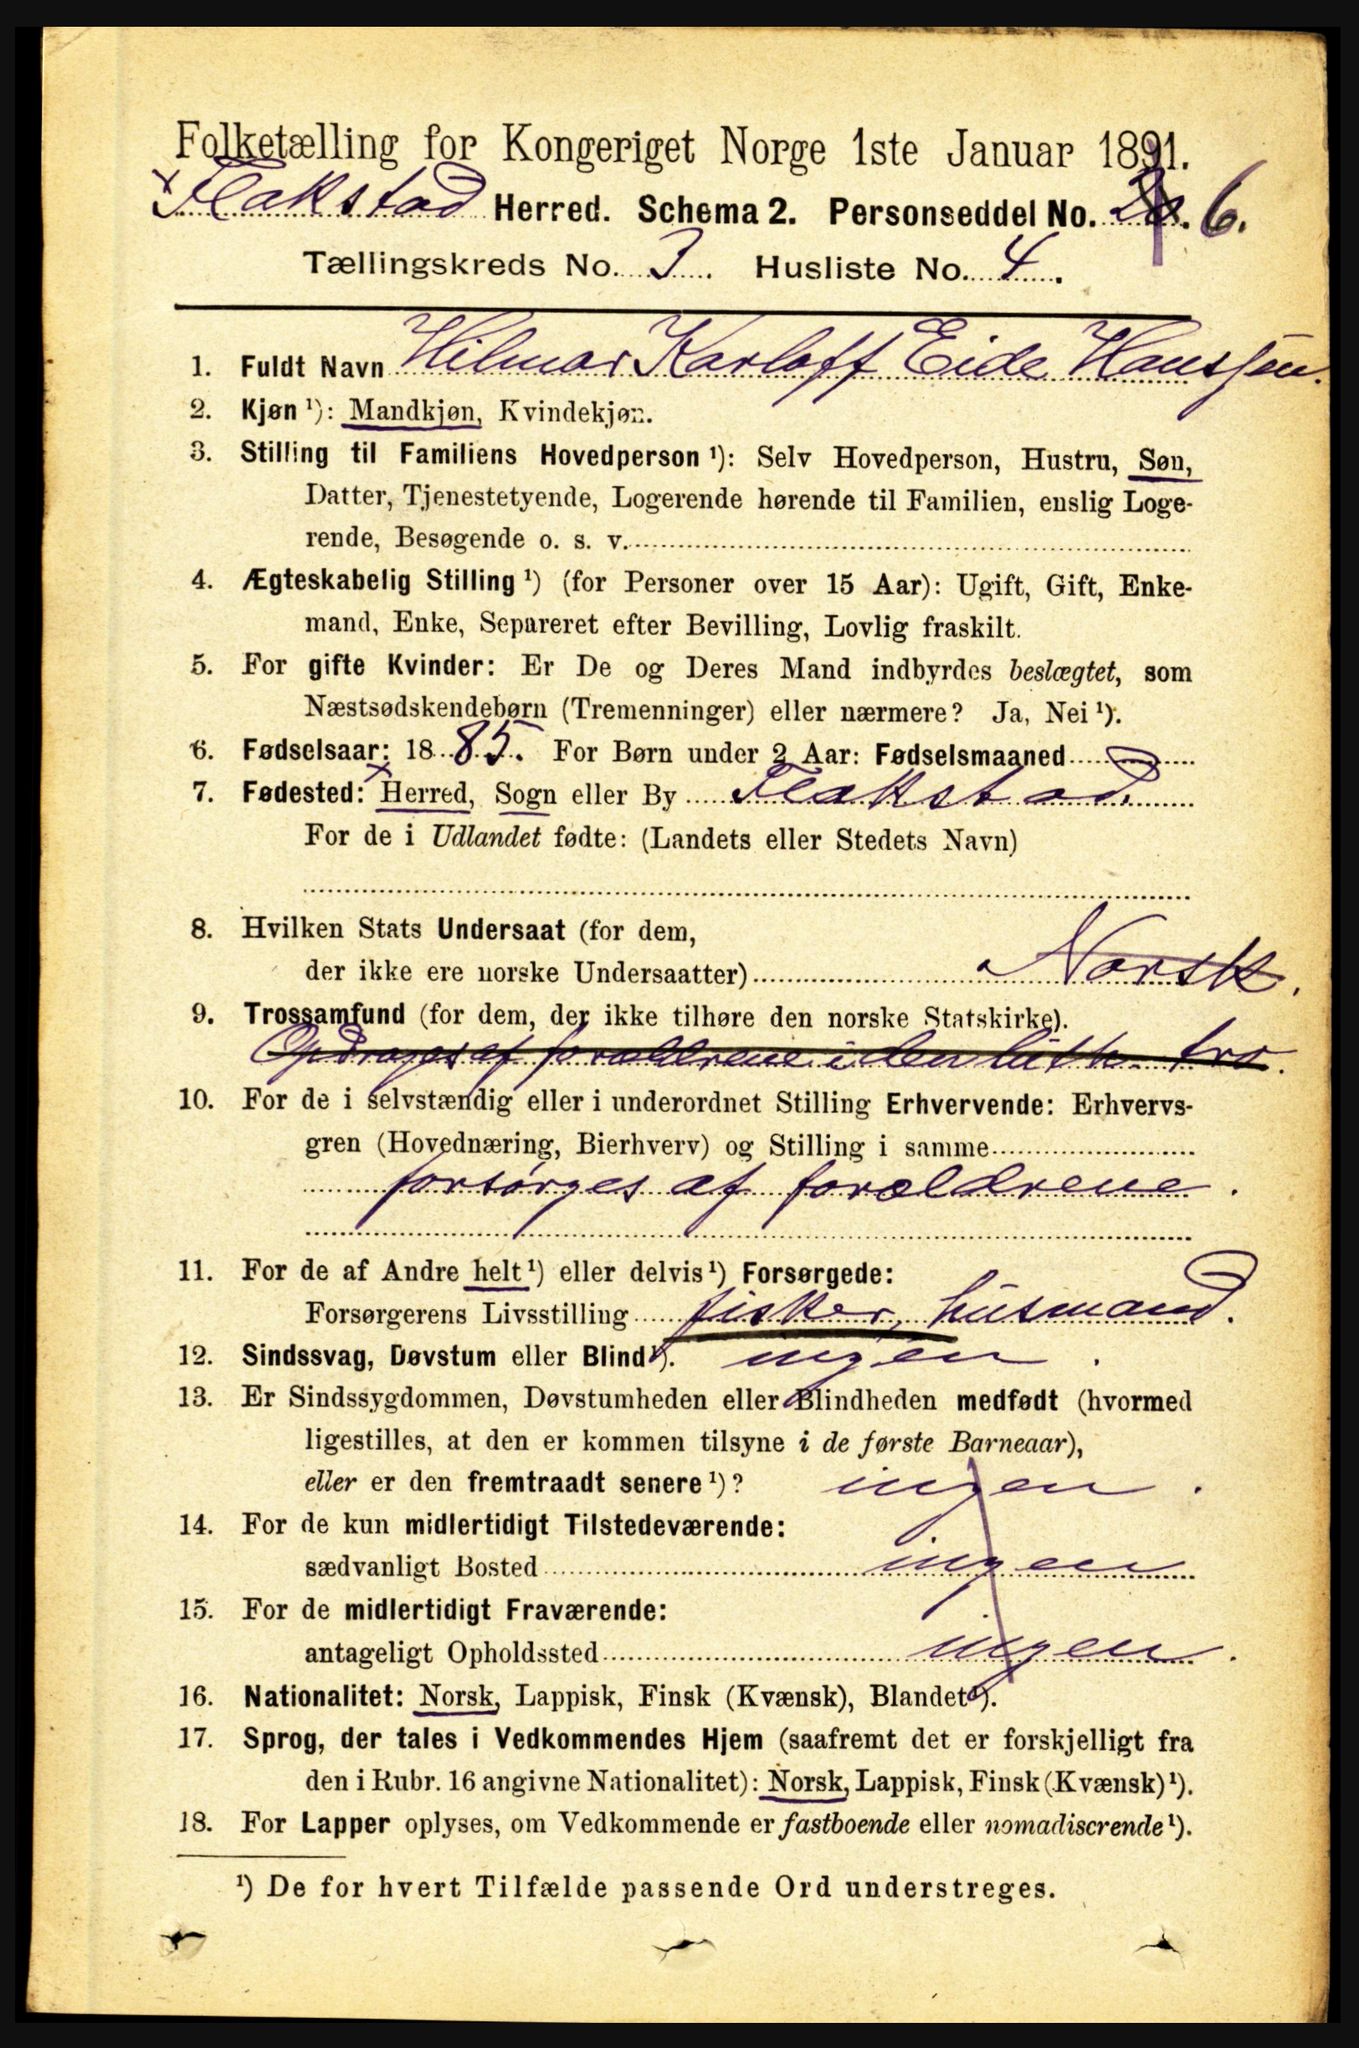 Folketælling for Kongeriget Norge 1ste Januar 1891.
Flakstad Herred. Schema 2. Personseddel No. 6.
Tællingskreds No. 3. Husliste No. 4.
1. Fuldt Navn Hilmar Karloff Eide Hanssen.
2. Kjøn ¹): Mandkjøn, Kvindekjøn.
3. Stilling til Familiens Hovedperson ¹): Selv Hovedperson, Hustru, Søn,
Datter, Tjenestetyende, Logerende hørende til Familien, enslig Loge-
rende, Besøgende o. s. v.
4. Ægteskabelig Stilling ¹) (for Personer over 15 Aar): Ugift, Gift, Enke-
mand, Enke, Separeret efter Bevilling, Lovlig fraskilt.
5. For gifte Kvinder: Er De og Deres Mand indbyrdes beslægtet, som
Næstsødskendebørn (Tremenninger) eller nærmere? Ja, Nei ¹).
6. Fødselsaar: 1885. For Børn under 2 Aar: Fødselsmaaned
7. Fødested: Herred, Sogn eller By Flakstad
For de i Udlandet fødte: (Landets eller Stedets Navn)
8. Hvilken Stats Undersaat (for dem,
der ikke ere norske Undersaatter) Norsk.
9. Trossamfund (for dem, der ikke tilhøre den norske Statskirke).
Opdrages af forældrene i den luth. tro.
10. For de i selvstændig eller i underordnet Stilling Erhvervende: Erhvervs-
gren (Hovednæring, Bierhverv) og Stilling i samme
forsørges af forældrene.
11. For de af Andre helt ¹) eller delvis ¹) Forsørgede:
Forsørgerens Livsstilling fisker, husmand.
12. Sindssvag, Døvstum eller Blind ¹). ingen.
13. Er Sindssygdommen, Døvstumheden eller Blindheden medfødt (hvormed
ligestilles, at den er kommen tilsyne i de første Barneaar),
eller er den fremtraadt senere ¹)? ingen.
14. For de kun midlertidigt Tilstedeværende:
sædvanligt Bosted ingen
15. For de midlertidigt Fraværende:
antageligt Opholdssted ingen.
16. Nationalitet: Norsk, Lappisk, Finsk (Kvænsk), Blandet ¹).
17. Sprog, der tales i Vedkommendes Hjem (saafremt det er forskjelligt fra
den i Rubr. 16 angivne Nationalitet): Norsk, Lappisk, Finsk (Kvænsk) ¹).
18. For Lapper oplyses, om Vedkommende er fastboende eller nomadiserende ¹).
¹) De for hvert Tilfælde passende Ord understreges.